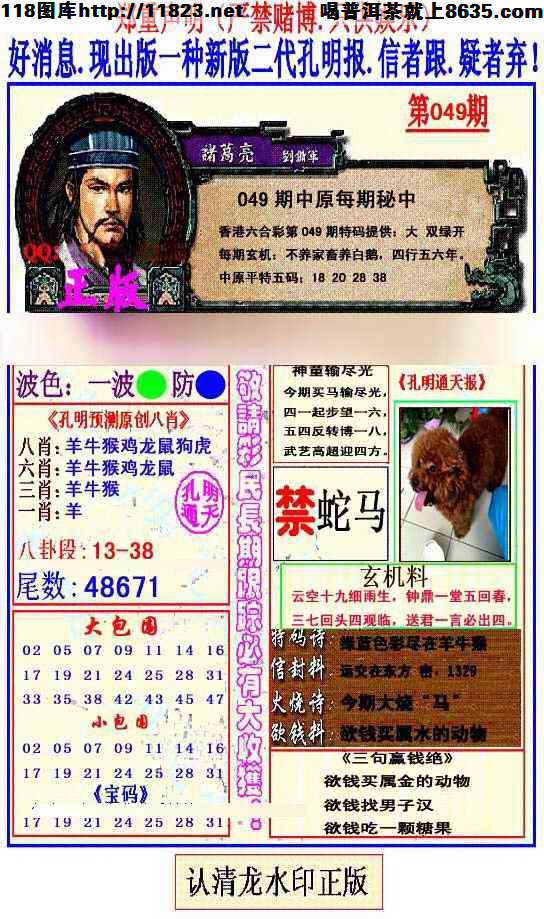 118图库http://11823.net 喝普洱茶就上8635.com
郑重声明(严禁赌博.只供娱乐)
好消息.现出版一种新版二代孔明报.信者跟.疑者弃!
第049期
諸葛亮
049 期中原每期秘中
香港六合彩第 049 期特码提供：大 双绿开
每期玄机：不养家畜养白鹅，四行五六年。
中原平特五码：18 20 28 38
QQ:
正版
波色：一波 防
《孔明预测原创八肖》
八肖：羊牛猴鸡龙鼠狗虎
六肖：羊牛猴鸡龙鼠
三肖：羊牛猴
一肖：羊
孔明
通天
八卦段：13-38
尾数：48671
大包围
02 05 07 09 11 14 16
17 19 21 24 25 28 31
33 35 38 42 43 45 47
小包围
02 05 07 09 11 14 16
17 19 21 24 25 28 31
《宝码》
17 19 21 24 25 28 31
敬請彩民長期跟踪必有大收獲!
神童输尽光
今期买马输尽光，
四一起步望一六，
五四反转博一八，
武艺高超迎四方。
《孔明通天报》
禁蛇马
玄机料
云空十九细雨生，钟鼎一堂五回春，
三七回头四观临，送君一言必出四。
特码诗：绿蓝色彩尽在羊牛猴
信封料：运交在东方 密．1329
火烧诗：今期大烧“马”
欲钱料：欲钱买属水的动物
《三句赢钱绝》
欲钱买属金的动物
欲钱找男子汉
欲钱吃一颗糖果
认清龙水印正版